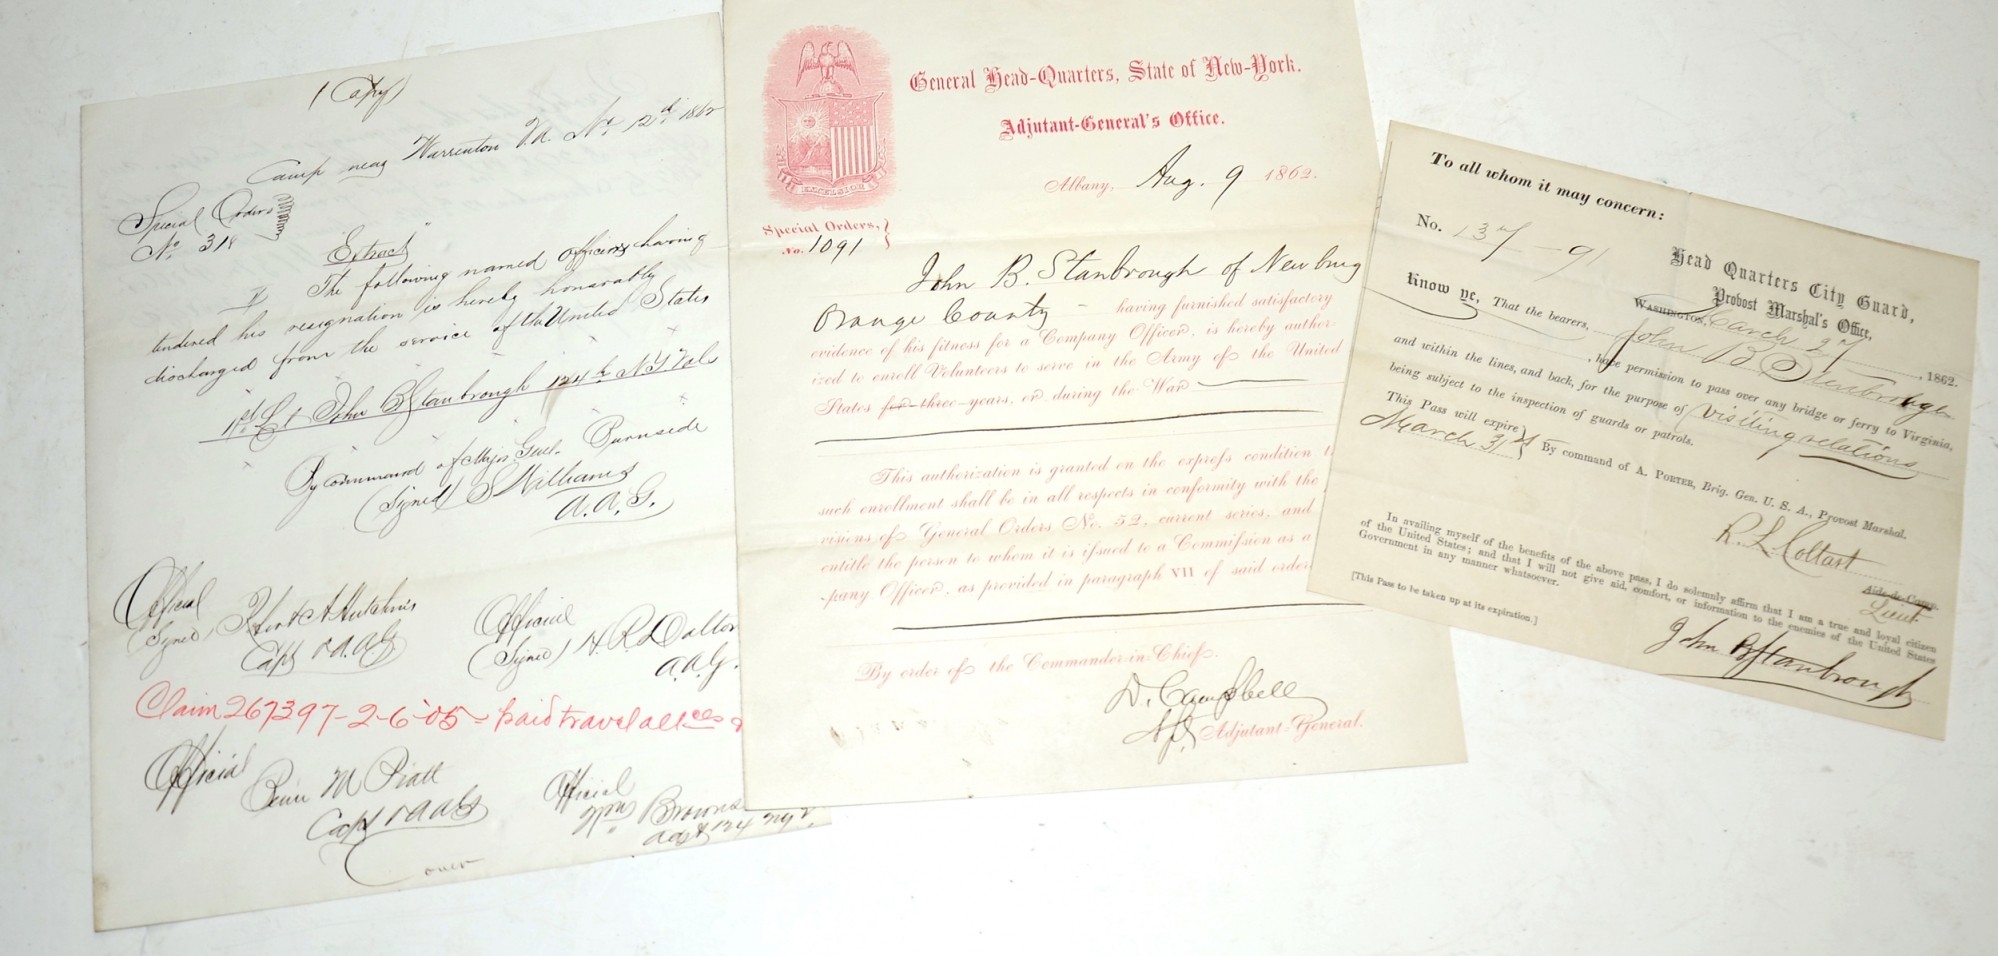 (Copy)
Camp near Warrenton Va. Nov 12th 1862
Special Orders
No. 318
"Extract"
II The following named officers having
tendered his resignation is hereby honorably
discharged from the service of the United States
1st Lt John B Stanbrough 124th NY Vols
By command of Major Genl. Burnside
(Signed) S Williams
A. A. G.
Official
(Signed)
Capt & A.A.G
Official
(Signed) H. R. Dalton
A.A.G.
Claim 267397-2-6-05- paid travel
Official
Benj M Piatt
Capt & AAG
Official
Wm Brownson
Adjt 124 NYV.
over
General Head-Quarters, State of New-York.
Adjutant-General's Office.
EXCELSIOR
Albany, Aug. 9 1862.
Special Orders,
No. 1091
John B. Stanbrough of Newburg
Orange County having furnished satisfactory
evidence of his fitness for a Company Officer, is hereby author-
ized to enroll Volunteers to serve in the Army of the United
States for three years, or during the War
This authorization is granted on the express condition t
such enrollment shall be in all respects in conformity with the
visions of General Orders No. 52, current series, and
entitle the person to whom it is issued to a Commission as a
pany Officer, as provided in paragraph VII of said order.
By order of the Commander-in-Chief.
D. Campbell
Adjutant-General.
To all whom it may concern:
No. 137-91
Head Quarters City Guard,
Provost Marshal's Office,
Washington, March 27 , 1862.
Know ye, That the bearers, John B Stenbrough
, have permission to pass over any bridge or ferry to Virginia,
and within the lines, and back, for the purpose of visiting relations
being subject to the inspection of guards or patrols.
This Pass will expire
March 31st
By command of A. Porter, Brig. Gen. U. S. A., Provost Marshal.
R. L. Coltart
Aide-de-Camp.
Lieut
In availing myself of the benefits of the above pass, I do solemnly affirm that I am a true and loyal citizen
of the United States; and that I will not give aid, comfort, or information to the enemies of the United States
Government in any manner whatsoever.
[This Pass to be taken up at its expiration.]
John B Stanbrough